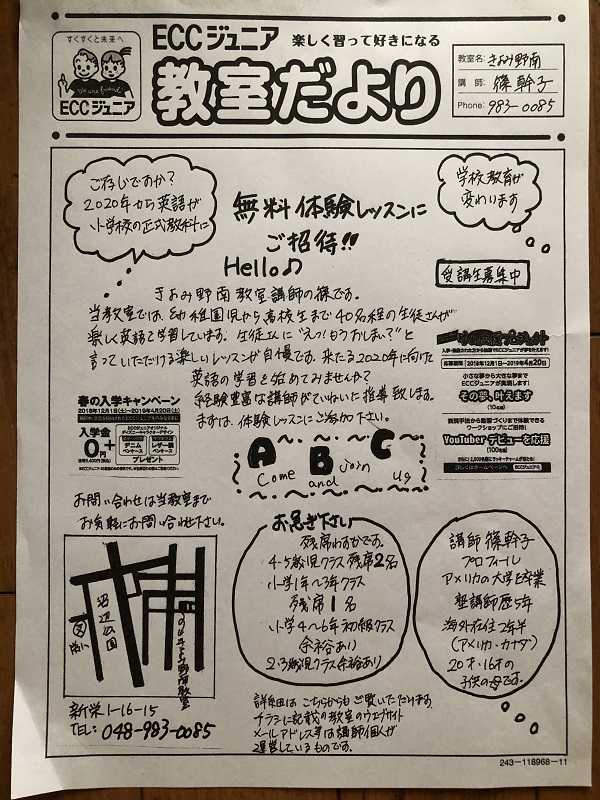 すくすくと未来へ
We are friends!
ECCジュニア
ECCジュニア 楽しく習って好きになる
教室だより
教室名: きよみ野南
講師: 篠 幹子
Phone: 983-0085
ご存じですか?
2020年から英語が
小学校の正式教科に
学校教育が
変わります
無料体験レッスンに
ご招待!!
Hello♪
受講生募集中
きよみ野南教室講師の篠です。
当教室では、幼稚園児から高校生まで40名程の生徒さんが
楽しく英語を学習しています。生徒さんに"えっ!もうおしまい?"と
言っていただける楽しいレッスンが自慢です。来たる2020年に向けた
英語の学習を始めてみませんか?
経験豊富な講師がていねいに指導致します。
まずは、体験レッスンにご参加下さい。
春の入学キャンペーン
2018年12月1日(土)~2019年4月20日(土)
入学金
0円
+
ECCジュニアオリジナル
ディズニーキャラクターデザイン
デニム
ペンケース
レザー調
ペンケース
プレゼント
応募期間 2018年12月1日~2019年4月20日
小さな夢から大きな夢まで
ECCジュニアが実現します!
その夢、叶えます
(10名様)
ワークショップにご招待!
YouTuber デビューを応援
(100名様)
詳しくはホームページへ
ECCジュニア
A B C
Come and join us
お問い合わせは当教室まで
お気軽にお問い合わせ下さい。
沼辺公園
きよみ野南教室
新栄1-16-15
TEL: 048-983-0085
お急ぎ下さい
残席わずかです。
4・5歳児クラス 残席2名
小学1年~3年クラス
残席1名
小学4~6年初級クラス
余裕あり
2・3歳児クラス余裕あり
講師 篠幹子
プロフィール
アメリカの大学を卒業
塾講師歴5年
海外在住2年半
(アメリカ・カナダ)
20才・16才の
子供の母です。
詳細はこちらからもご覧いただけます。
チラシに記載の教室のウェブサイト
メールアドレス等は講師個人が
運営しているものです。
243-118968-11